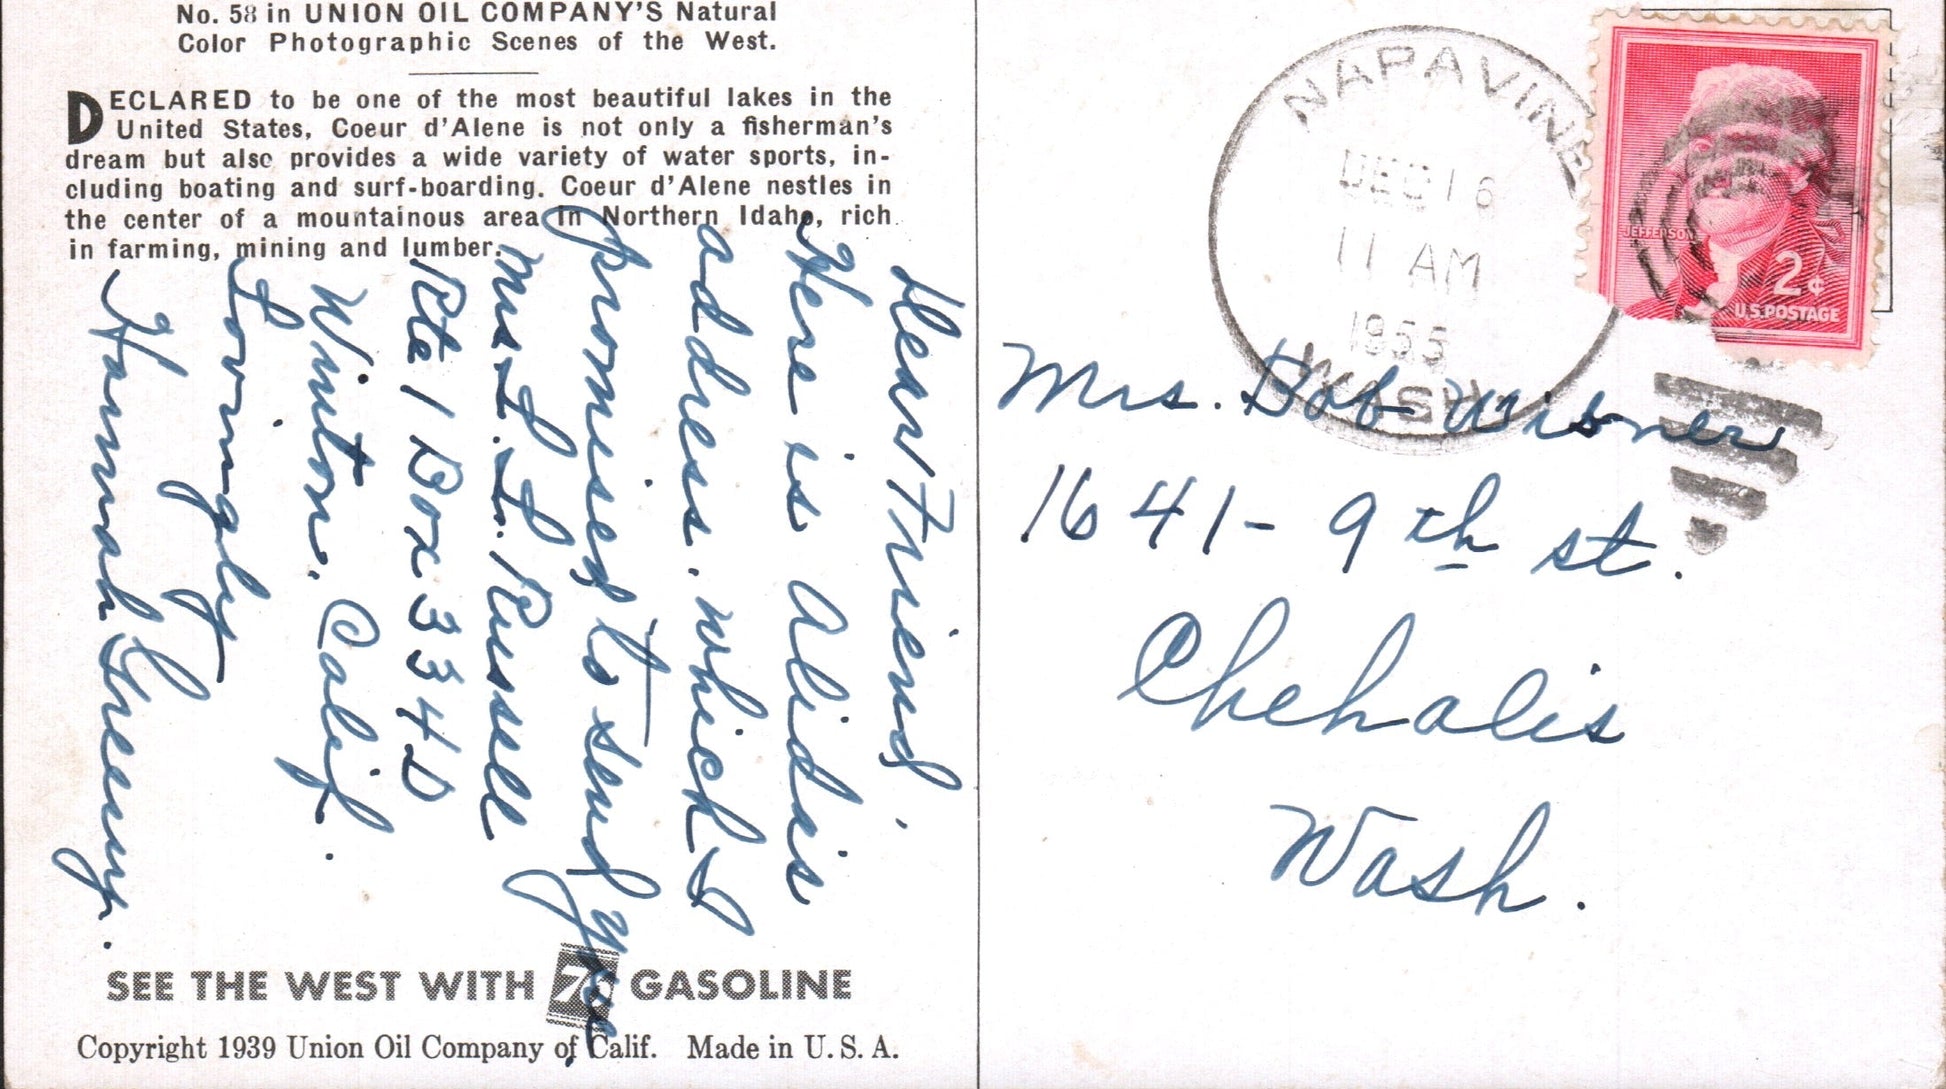 No. 58 in UNION OIL COMPANY'S Natural
Color Photographic Scenes of the West.
DECLARED to be one of the most beautiful lakes in the
United States, Coeur d'Alene is not only a fisherman's
dream but also provides a wide variety of water sports, in-
cluding boating and surf-boarding. Coeur d'Alene nestles in
the center of a mountainous area in Northern Idaho, rich
in farming, mining and lumber.
Dear Friend,
Here is Alidas
address. which I
promised to send you
Mrs. L. L. Russell
Rte 1 Box 334D
Winton. Calif.
Lovingly
Hannah
SEE THE WEST WITH 76 GASOLINE
Copyright 1939 Union Oil Company of Calif. Made in U. S. A.
NAPAVINE
DEC 16
11 AM
1955
WASH
JEFFERSON
2¢
U.S. POSTAGE
Mrs. Bob Wisner
1641 - 9th st.
Chehalis
Wash.